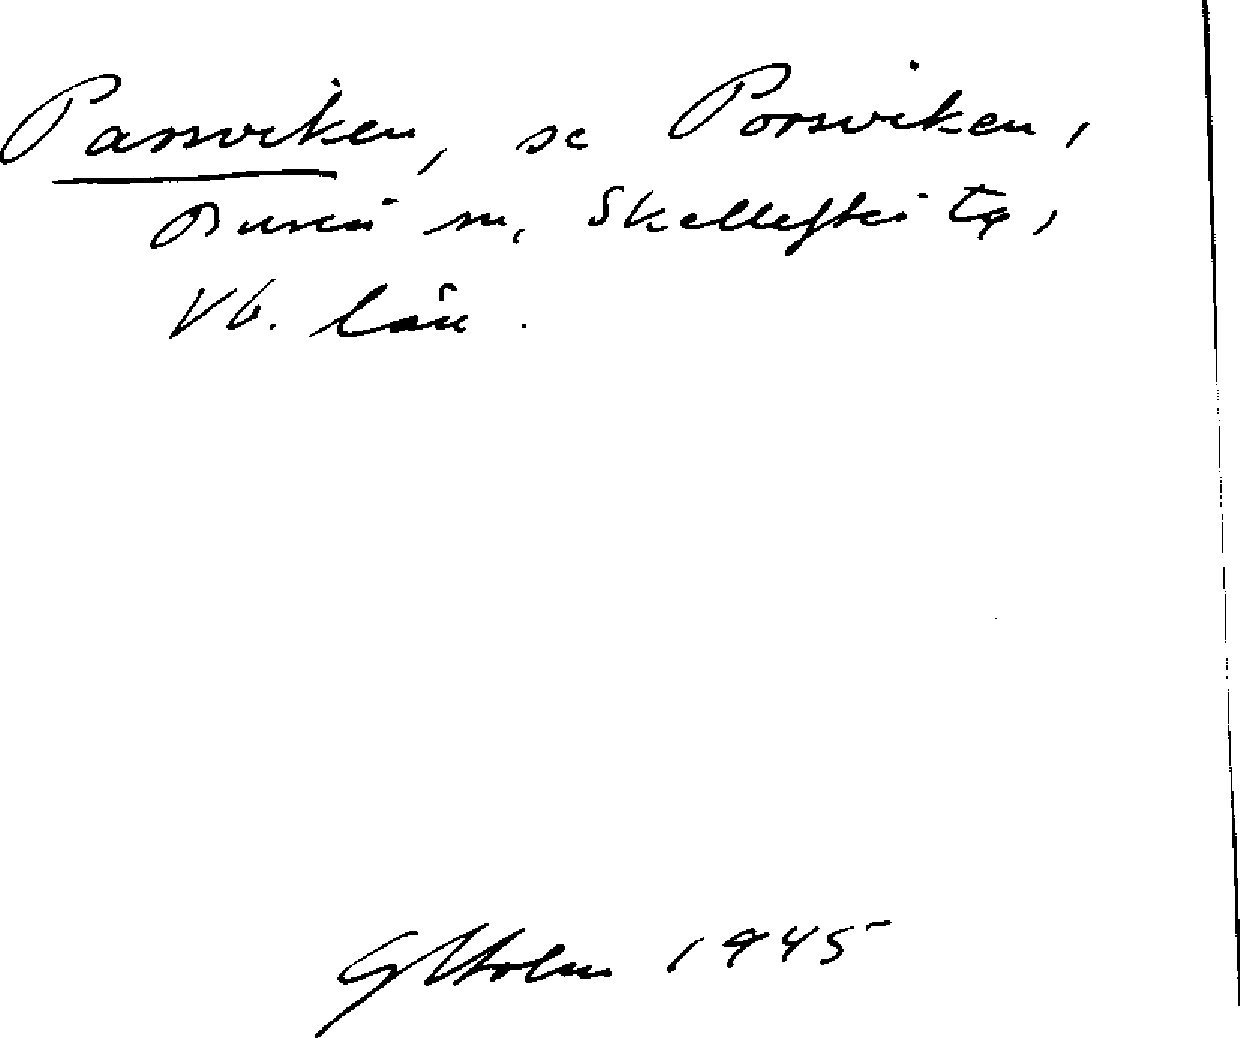 Parsviken, se Porsviken,
Bureå sn, Skellefteå tg,
Vb. län.
G Holm 1945